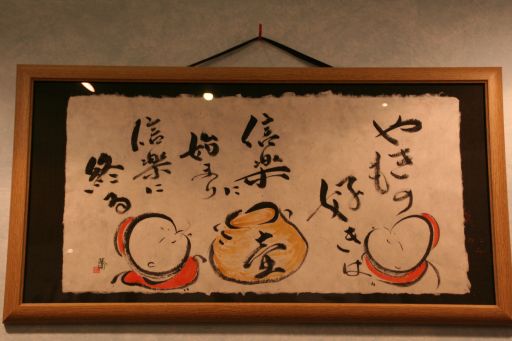 やきもの
好きは
信楽に
始まり
信楽に
終る
壷